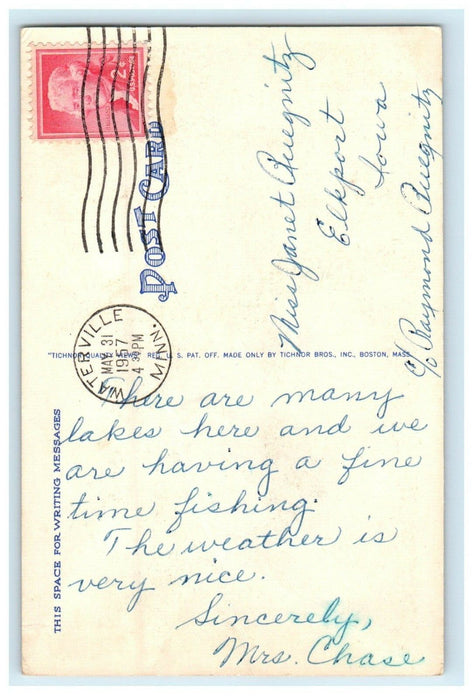 2¢
POST CARD
Miss Janet Quegnitz
Elkport
Iowa
c/o Raymond Quegnitz
WATERVILLE
MAY 31
1957
4 30 PM
MINN.
"TICHNOR QUALITY VIEWS" REG. U. S. PAT. OFF. MADE ONLY BY TICHNOR BROS., INC., BOSTON, MASS.
THIS SPACE FOR WRITING MESSAGES
There are many
lakes here and we
are having a fine
time fishing.
The weather is
very nice.
Sincerely,
Mrs. Chase